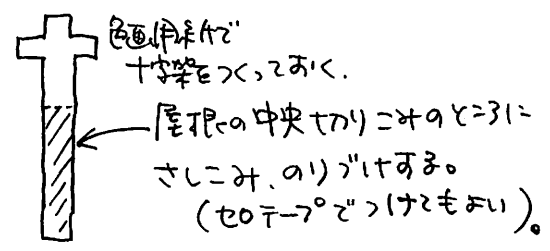 色画用紙で
十字架をつくっておく.
屋根の中央切りこみのところに
さしこみ、のりづけする。
(セロテープでつけてもよい)。